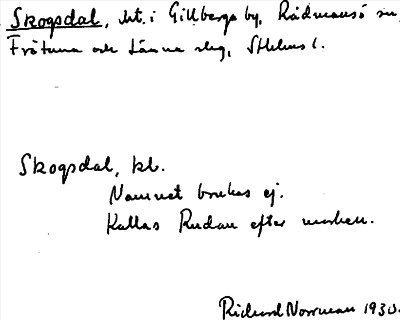 Skogsdal, ht. i Gillberga by, Rådmansö sn,
Frötuna och Länna slg, Sthlms l.
Skogsdal, kb.
Namnet brukas ej.
Kallas Rudan efter marken.
Richard Norrman 1930.